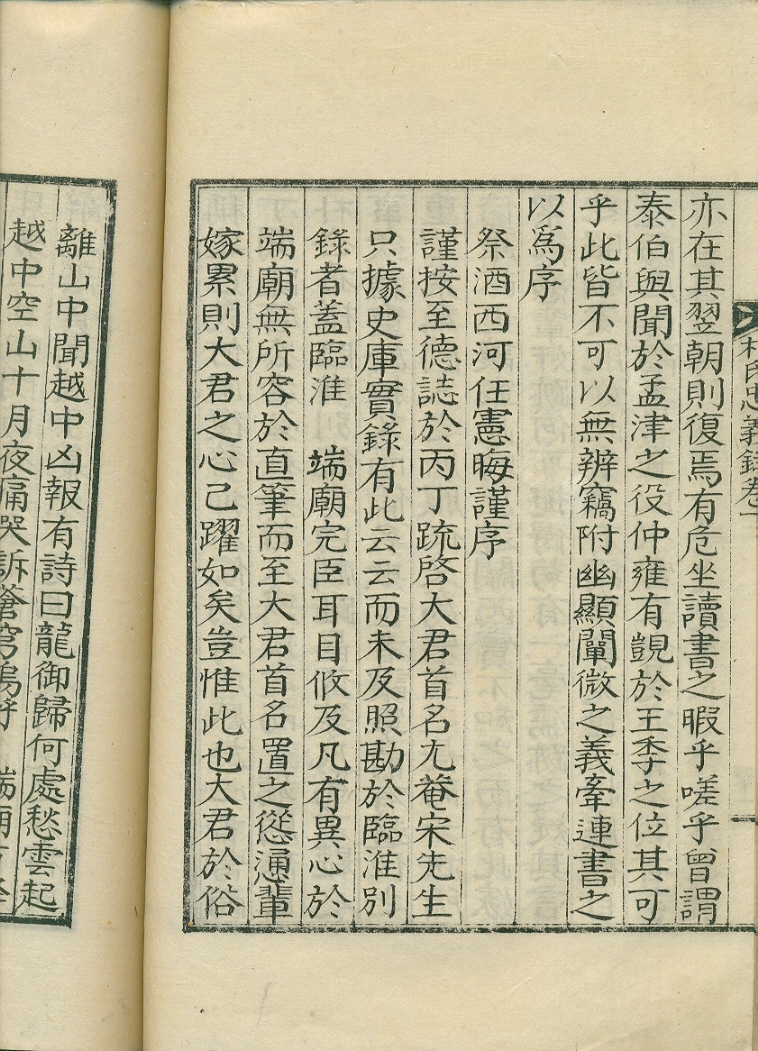 朴氏忠義錄卷一
亦在其翌朝則復焉有危坐讀書之暇乎嗟乎曾謂
泰伯與聞於孟津之役仲雍有覬於王季之位其可
乎此皆不可以無辨竊附幽顯闡微之義牽連書之
以爲序
祭酒西河任憲晦謹序
謹按至德誌於丙丁疏啓大君首名尤菴宋先生
只據史庫實錄有此云云而未及照勘於臨淮別
錄者蓋臨淮 端廟完臣耳目攸及凡有異心於
端廟無所容於直筆而至大君首名置之慫慂輩
嫁累則大君之心已躍如矣豈惟此也大君於俗
離山中聞越中凶報有詩曰龍御歸何處愁雲起
越中空山十月夜痛哭訴蒼穹嗚呼 端廟